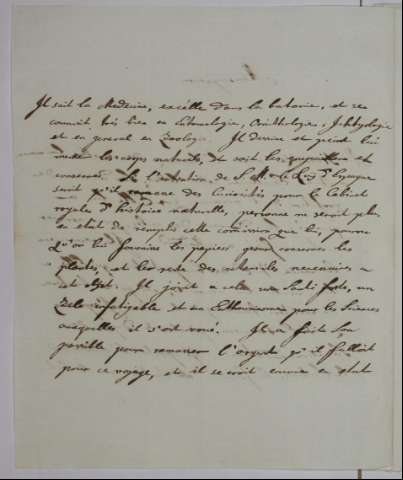 Il sait la Medecine, excelle dans la botanie, et se
connoit très bien en Entomologie, Ornithologie, Ichtyologie
et en general en Zoologie. Il dessine et peint lui
meme les corps naturels, et sait les et
conserver. Si l'intention de S. M. le Roy d'Espagne
seroit qu'il ramasse des Curiosités pour le Cabinet
royale d'histoire naturelle, personne ne seroit plus
en etat de remplir cette comission que lui, pourvu
qu'on lui fournisse les papiers pour conserver les
plantes, et les reste des materiels necessaires a
cet objet. Il joint a cela une Santé forte, un
Zele infatigable et un Enthousiasme pour les Sciences
auxquelles il s'est voué. Il a fait son
possible pour ramasser l'argent qu'il falloit
pour ce voyage, et il se croit comme en etat